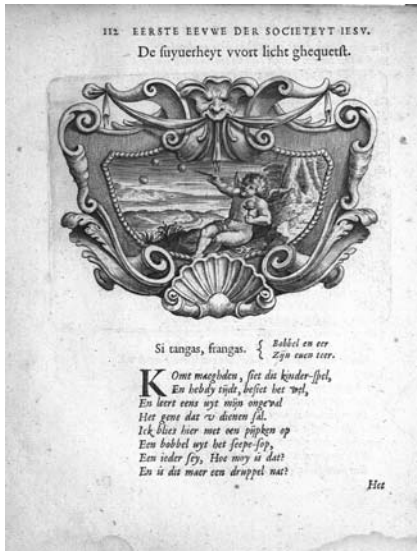 112 EERSTE EEVWE DER SOCIETEYT IESV.
De suyuerheyt vvort licht ghequetst.
Si tangas, frangas. { Bobbel en eer
Zijn euen teer.
KOmt maeghden, siet dit kinder-spel,
En hebdy tijdt, besiet het wel,
En leert eens uyt mijn ongeval
Het gene dat v dienen sal.
Ick blies hier met een pijpken op
Een bobbel uyt het seepe-sop,
Een ieder sey, Hoe moy is dat?
En is dit maer een druppel nat?
Het